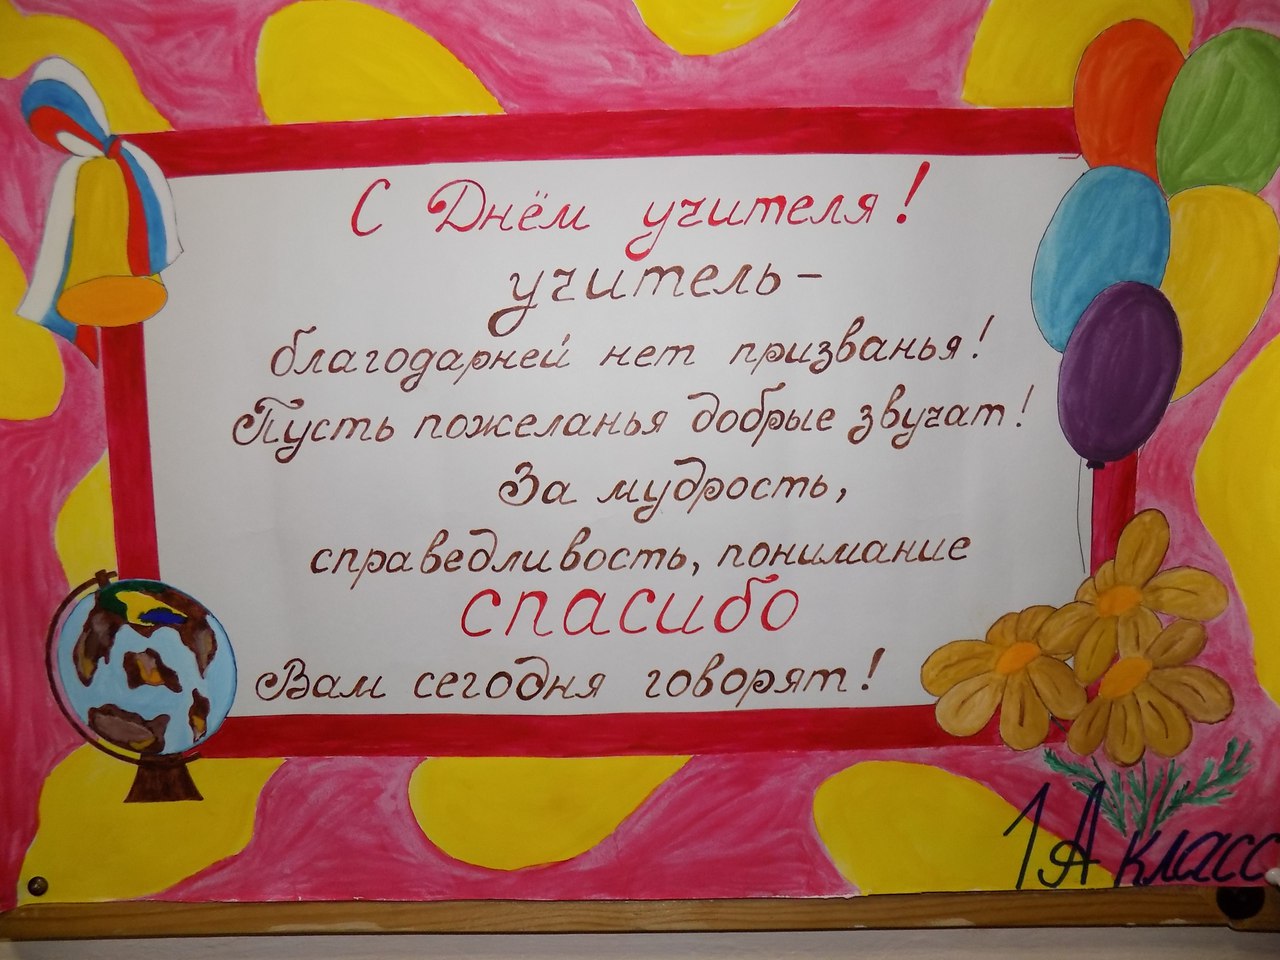 С Днём учителя!
учитель-
благодарней нет призванья!
Пусть пожеланья добрые звучат!
За мудрость,
справедливость, понимание
спасибо
Вам сегодня говорят!
1А класс